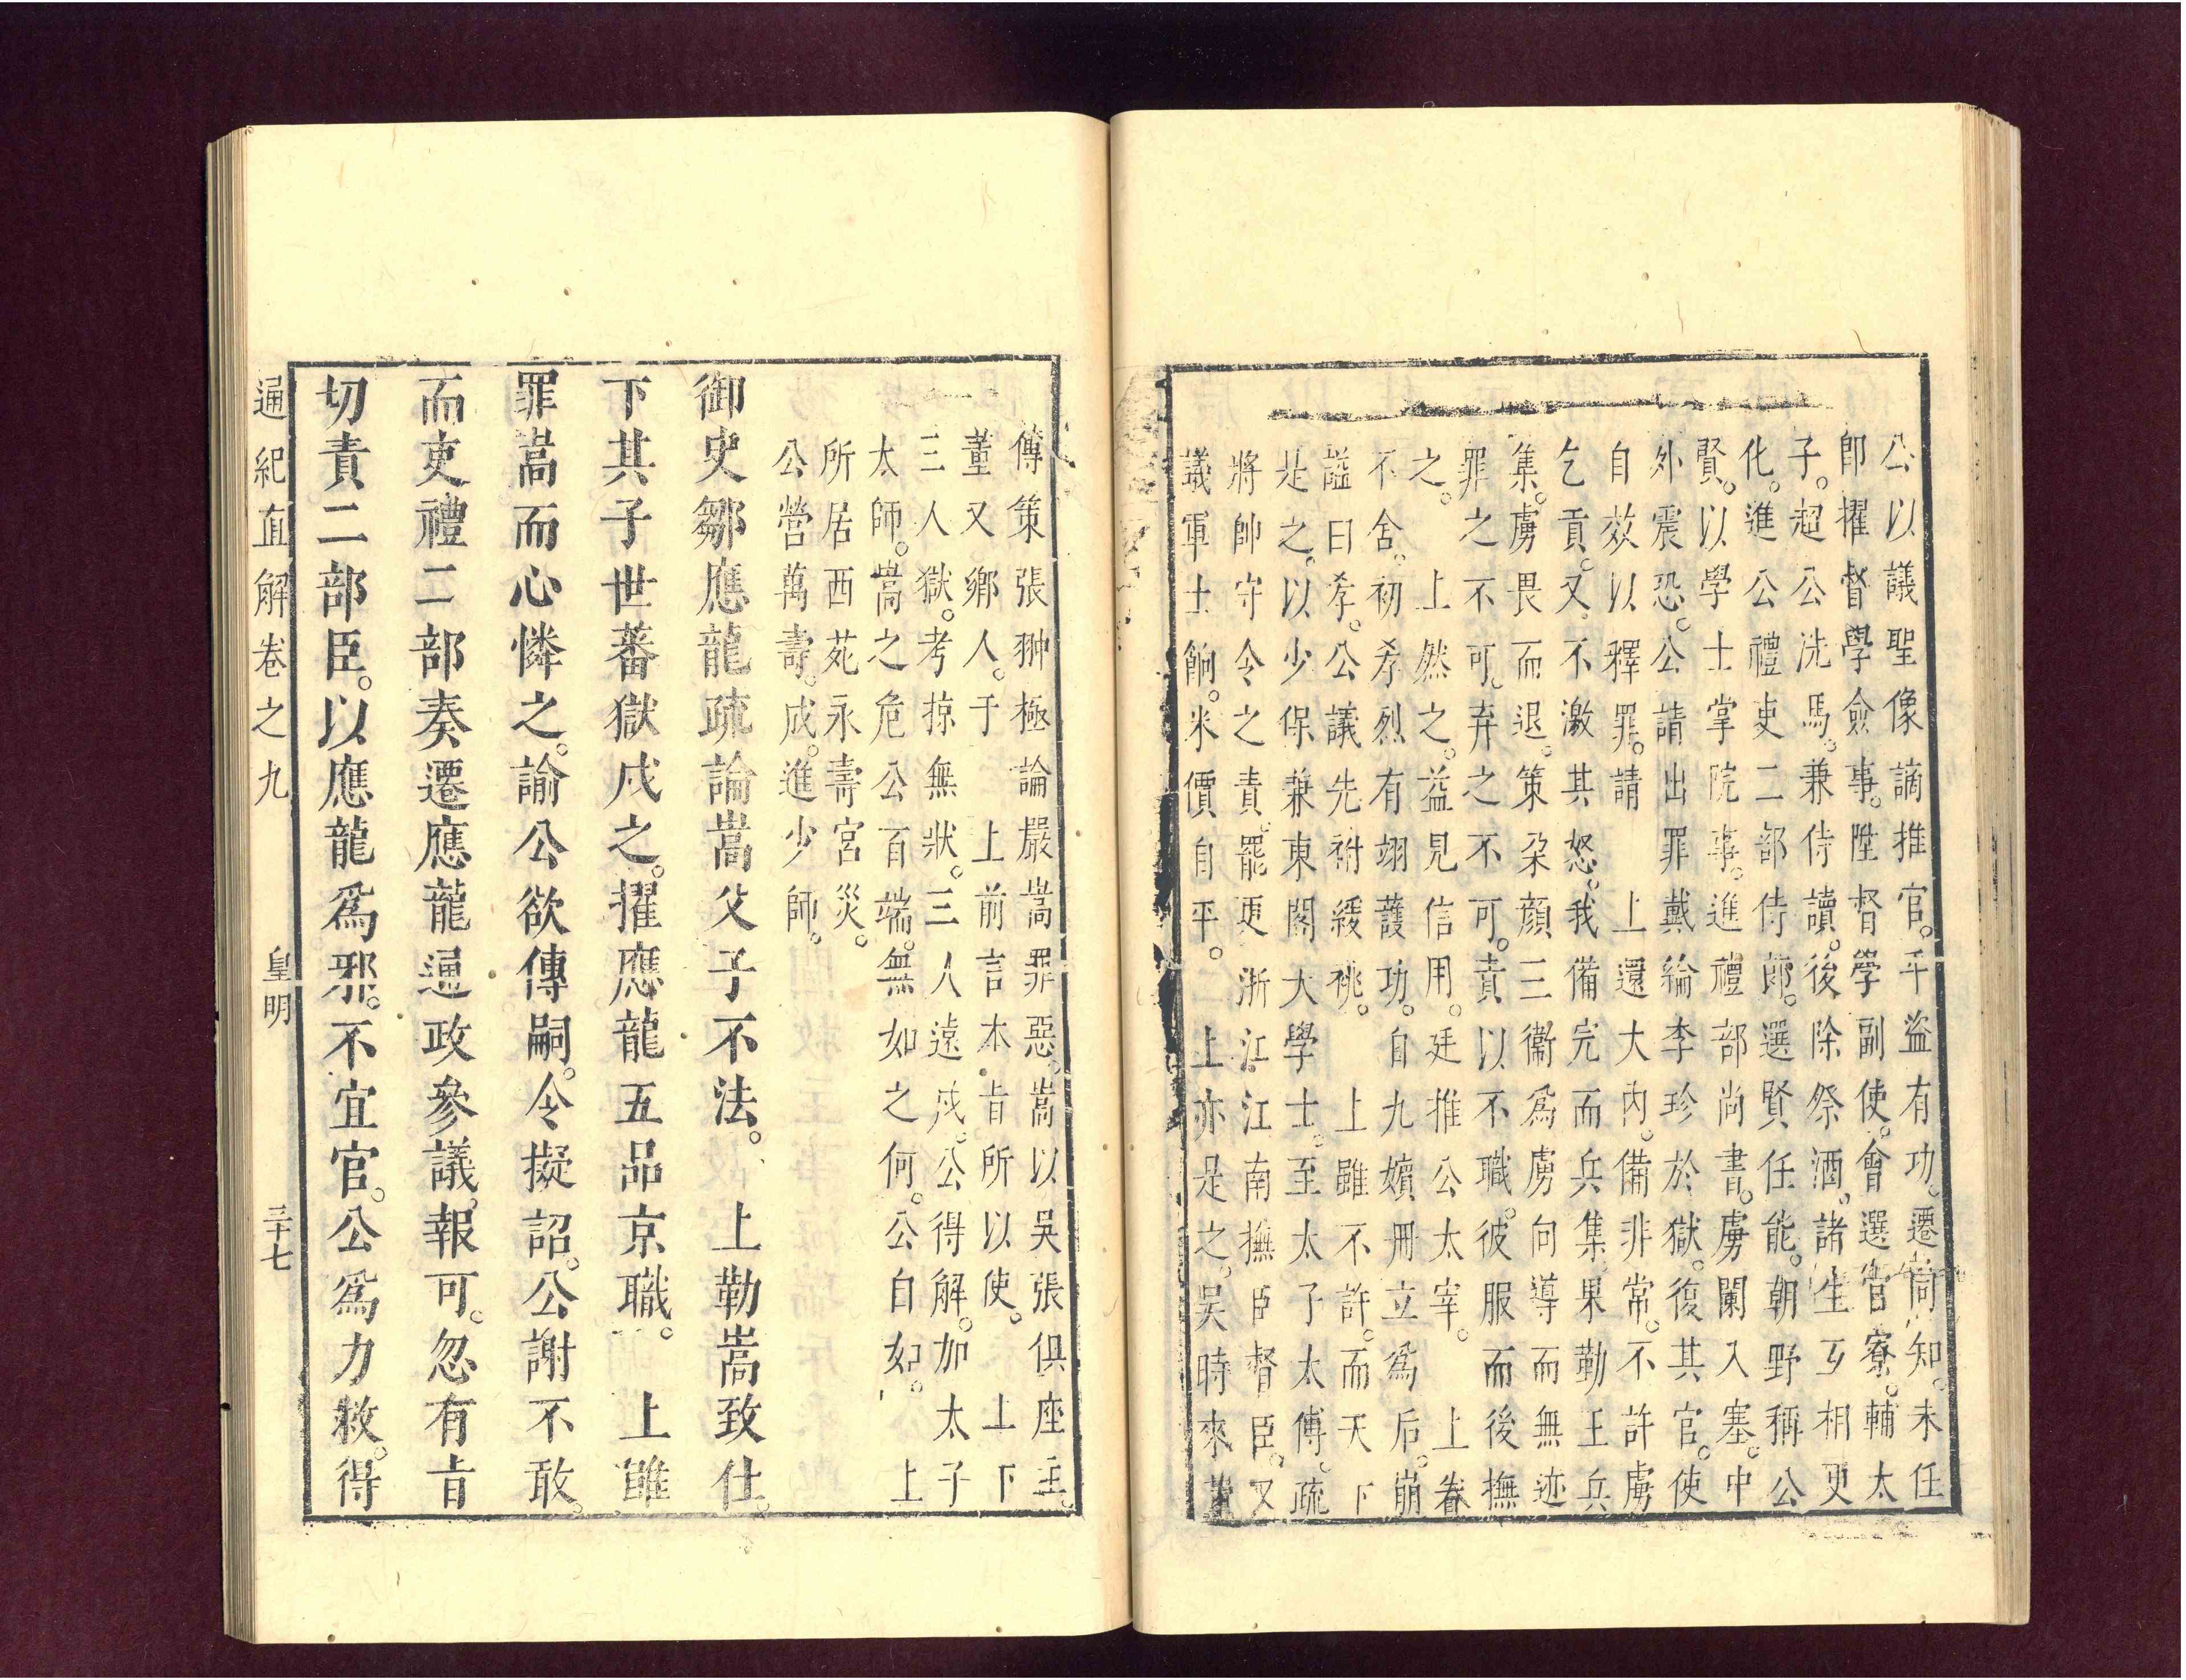 公以議聖像謫推官。平盜有功。遷同知。未任
卽擢督學僉事。陞督學副使。會選官寮。輔太
子。超公洗馬。兼侍讀。後除祭酒。諸生互相更
化。進公禮吏二部侍郎。選賢任能。朝野稱公
賢。以學士掌院事。進禮部尚書。虜闌入塞。中
外震恐。公請出罪戴綸李珍於獄。復其官。使
自效以釋罪。請　上還大內。備非常。不許虜
乞貢。又不激其怒。我備完而兵集。果勤王兵
集。虜畏而退。策朶顔三衞爲虜向導而無迹
罪之不可。弃之不可。責以不職。彼服而後撫
之。　上然之。益見信用。廷推公太宰。　上眷
不舍。初孝烈有翊護功。自九嬪冊立爲后。崩
謚曰孝。公議先祔緩祧。　上雖不許。而天下
是之。以少保兼東閣大學士。至太子太傅。疏
將帥守令之責。罷更浙江江南撫臣督臣。又
議軍士餉。米價自平。　上亦是之。吳時來董
傳策張翀極論嚴嵩罪惡。嵩以吳張俱座主。
董又鄉人。于　上前言本㫖所以使。　上下
三人獄。考掠無狀。三人遠戍。公得解。加太子
太師。嵩之危公百端。無如之何。公自如。　上
所居西苑永壽宮災。
公營萬壽。成。進少師。
御史鄒應龍疏論嵩父子不法。　上勒嵩致仕。
下其子世蕃獄戍之。擢應龍五品京職。　上雖
罪嵩而心憐之。諭公欲傳嗣。令擬詔。公謝不敢。
而吏禮二部奏遷應龍通政參議。報可。忽有㫖
切責二部臣。以應龍爲邪。不宜官。公爲力救。得
通紀直解卷之九　皇明　三十七